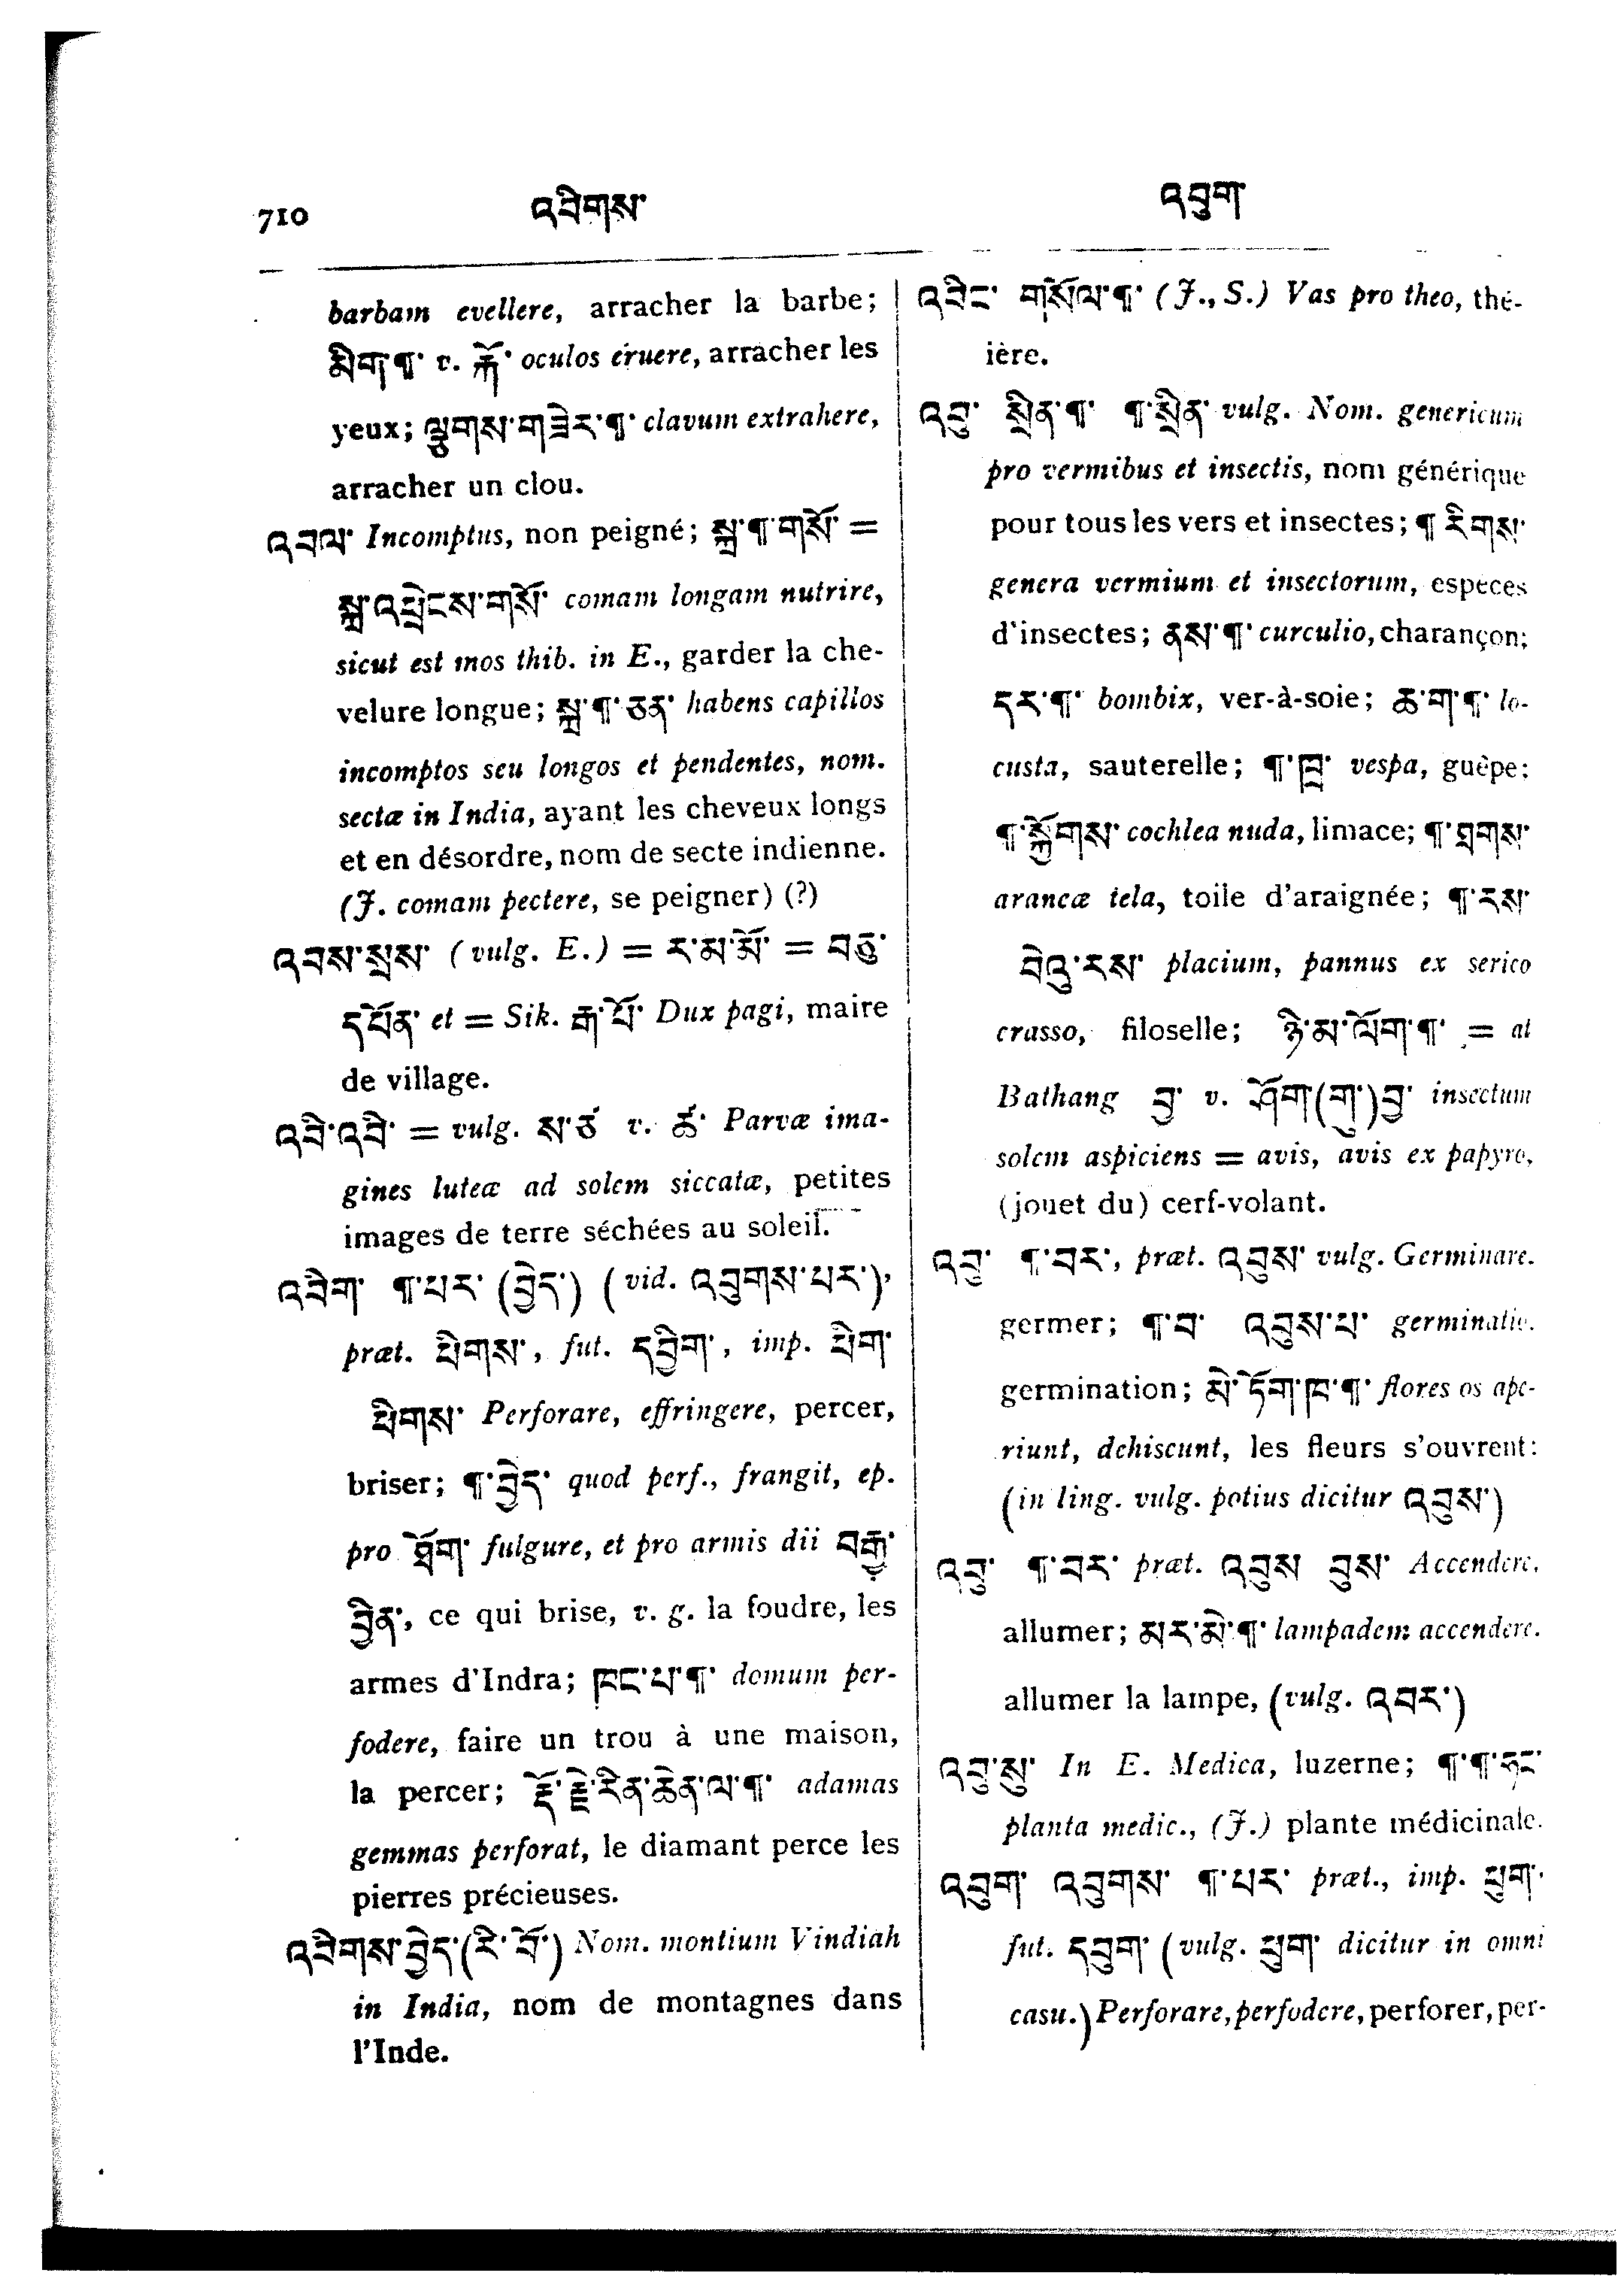 710 འབིགས་ འབུག་
barbam evellere, arracher la barbe;
མིག་¶་ v. རྐོ་ oculos eruere, arracher les
yeux; ལྕགས་གཟེར་¶་ clavum extrahere,
arracher un clou.
འབལ་ Incomptus, non peigné; སྐྲ་¶་གསོ་ =
སྐྲ་འཕྲེངས་གསོ་ comam longam nutrire,
sicut est mos thib. in E., garder la che-
velure longue; སྐྲ་¶་ཅན་ habens capillos
incomptos seu longos et pendentes, nom.
sectæ in India, ayant les cheveux longs
et en désordre, nom de secte indienne.
(J. comam pectere, se peigner) (?)
འབས་སྲས་ (vulg. E.) = ར་མ་མོ་ = བཅུ་
དཔོན་ et = Sik. རྒ་པོ་ Dux pagi, maire
de village.
འབི་འབི་ = vulg. ས་ཙ v. ཚ་ Parvæ ima-
gines luteæ ad solem siccatæ, petites
images de terre séchées au soleil.
འབིག་ ¶་པར་ (བྱེད་) (vid. འབུགས་པར་),
præt. ཕིགས་, fut. དབྱིག་, imp. ཕིག་
ཕིགས་ Perforare, effringere, percer,
briser; ¶་བྱེད་ quod perf., frangit, ep.
pro ཐོག་ fulgure, et pro armis dii བརྒྱ་
བྱིན་, ce qui brise, v. g. la foudre, les
armes d'Indra; ཁང་པ་¶་ domum per-
fodere, faire un trou à une maison,
la percer; རྡོ་རྗེ་རིན་ཆེན་ལ་¶་ adamas
gemmas perforat, le diamant perce les
pierres précieuses.
འབིགས་བྱེད་(རི་བོ་) Nom. montium Vindiah
in India, nom de montagnes dans
l'Inde.
འབིང་ གསོལ་¶་ (J., S.) Vas pro theo, thé-
ière.
འབུ་ སྲིན་¶་ ¶་སྲིན་ vulg. Nom. genericum
pro vermibus et insectis, nom générique
pour tous les vers et insectes; ¶ རིགས་
genera vermium et insectorum, espèces
d'insectes; ནས་¶་ curculio, charançon;
དར་¶་ bombix, ver-à-soie; ཆ་ག་¶་ lo-
custa, sauterelle; ¶་ཁྲ་ vespa, guêpe;
¶་སྐྱོགས་ cochlea nuda, limace; ¶་ཐགས་
arancæ tela, toile d'araignée; ¶་རས་
བེའུ་རས་ placium, pannus ex serico
crasso, filoselle; ཉི་མ་ལོག་¶་ = at
Bathang བྱ་ v. ཤོག་(གུ་)བྱ་ insectum
solem aspiciens = avis, avis ex papyro,
(jouet du) cerf-volant.
འབུ་ ¶་བར་, præt. འབུས་ vulg. Germinare.
germer; ¶་བ་ འབུས་པ་ germinatio.
germination; མེ་ཏོག་ཁ་¶་ flores os ape-
riunt, dehiscunt, les fleurs s'ouvrent:
(in ling. vulg. potius dicitur འབུས་)
འབུ་ ¶་བར་ præt. འབུས བུས་ Accendere.
allumer; མར་མེ་¶་ lampadem accendere.
allumer la lampe, (vulg. འབར་)
འབུ་སུ་ In E. Medica, luzerne; ¶་¶་ཧང་
planta medic., (J.) plante médicinale.
འབུག་ འབུགས་ ¶་པར་ præt., imp. ཕུག་,
fut. དབུག་ (vulg. ཕུག་ dicitur in omni
casu.) Perforare, perfodere, perforer, per-